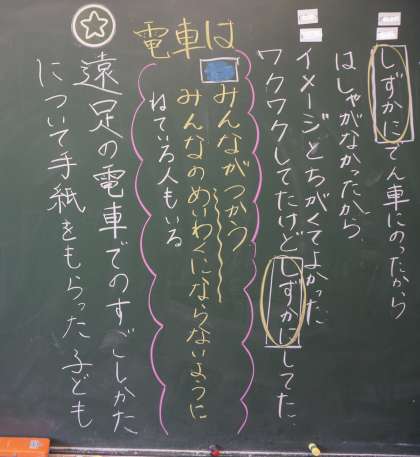 しずかにでん車にのったから
はしゃがなかったから
イメージとちがくてよかった
ワクワクしてたけどしずかにしてた
電車は
みんながつかう
みんなのめいわくにならないように
ねている人もいる
遠足の電車でのすごしかた
について手紙をもらった子ども